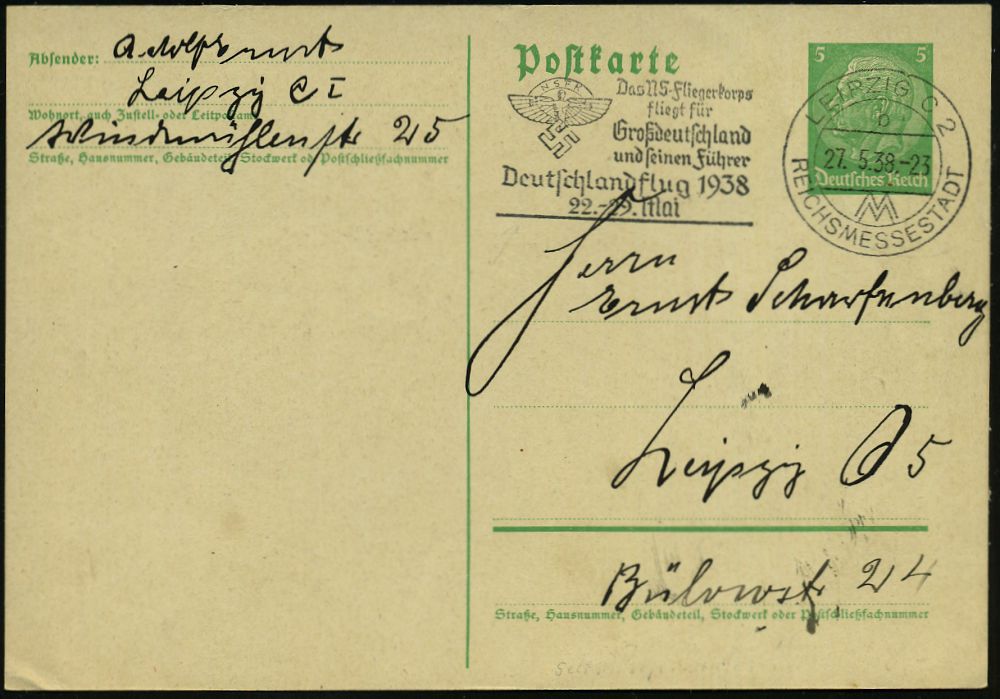 Absender: Adolf Ernst
Leipzig C I
Wohnort, auch Zustell- oder Leitpostamt
Windmühlenstr 25
Straße, Hausnummer, Gebäudeteil, Stockwerk od. Postschließfachnummer
Postkarte
NSFK
Das NS-Fliegerkorps
fliegt für
Großdeutschland
und seinen Führer
Deutschlandflug 1938
22.-29. Mai
5 5
Deutsches Reich
LEIPZIG C 2
b
27.5.38.-23
REICHSMESSESTADT
Herrn
Ernst Scharfenberg
Leipzig O 5
Bülowstr 24
Straße, Hausnummer, Gebäudeteil, Stockwerk oder Postschließfachnummer